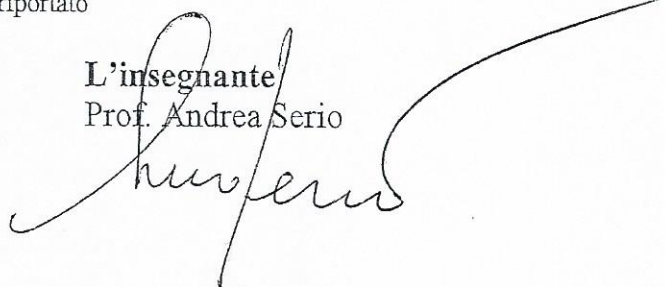 riportato
L'insegnante
Prof. Andrea Serio